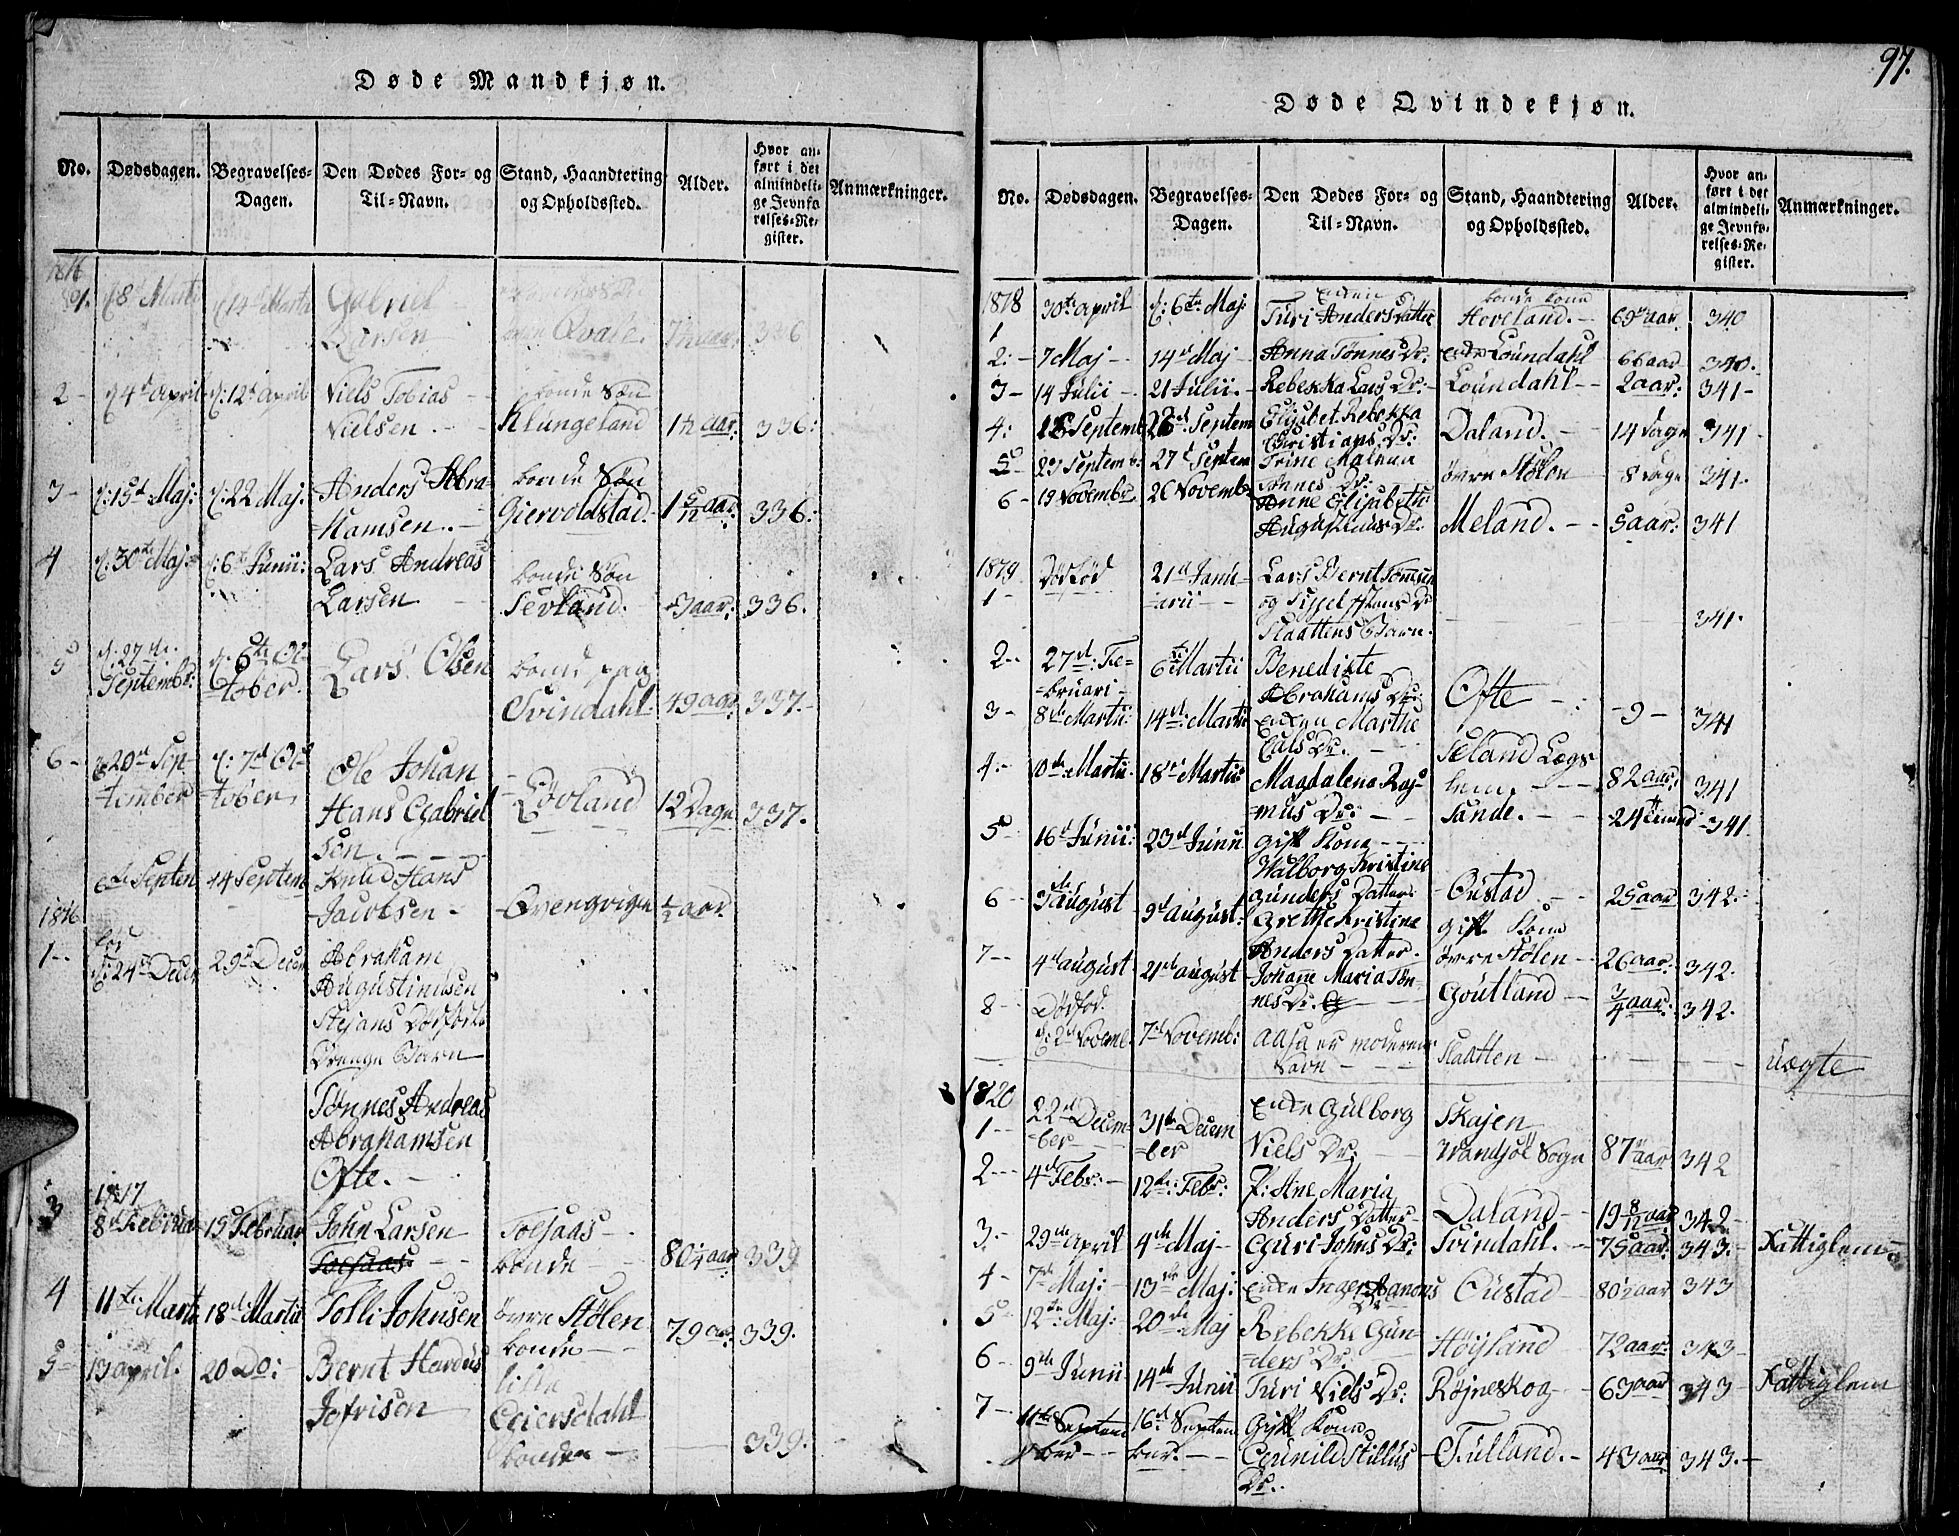 97.
Døde Mandkjøn.
No. Dødsdagen. Begravelses-Dagen. Den Dødes For- og Til-Navn. Stand, Haandtering og Opholdssted. Alder. Hvor anført i det almindelige Jevnførelses-Register. Anmærkninger.
1816
1. 8 Marti 14 Martii Gabriel
Larsen Qvale. 336
2 - 4de April 12te April Niels Tobias bonde Søn
Nielsen. Klungeland 1½ aar: 336:
3 - d: 15d Maj: d: 22 Maj: Anders Abra- bonde Søn
-hamsen. Giervoldstad. 1 5/12 aar: 336:
4 d: 30te Maj: d: 6te Junii: Lars Andreas bonde Søn
Larsen Sevland. aar: 336.
5 d. 27de d. 6te Oc-
Septembr: -tober. Lars Olsen bonde paa
Svindahl. 49 aar: 337.
6 - d 20d Sep d: 7d Oc
-tember -tober Ole Johan
Hans Gabriel Løvland 12 Dage 337.
sen.
6te Septem 14 Septem Knud Hans
Jacobsen - Øvengrign ½ aar.
1816
1 - d: 24de Decem 29d Decem Abraham
Augustinusen
Stejans Dødfødte
Drenge Barn
Tønnes Andreas
Abrahamsen
Ofte.
1817
3 8d Februar 15 Februar John Larsen Tolsaas
Tolsaas bonde 80¼ aar 339
4 11te Marti 18d Martii Tolli Johnsen øvre Stølen
bonde 79 aar: 339.
5 - 13 april. 20 Do: Bernt Hardus lille
Jofrisen Eiersdahl
bonde 339.
Døde Qvindekjøn.
No. Dødsdagen. Begravelses-Dagen. Den Dødes For- og Til-Navn. Stand, Haandtering og Opholdssted. Alder. Hvor anført i det almindelige Jevnførelses-Register. Anmærkninger.
1818 30te april d: 6te Maj: Enken bonde kone
1 Turi Anders Datter Hoveland. 69 aar 340
2: - 7 Maj 14d Maj Anna Tønnes Dr. Enke Loundahl 66 aar 340.
3 - 14 Julii 21 Julii. Rebekka Lars Dr: Loundahl 2 aar: 341 -
4: 18 Septemb 26d. Septem Elisabet Rebekka
Christians Dr: Daland. 14 Dage 341
5 - 23 Septemb: 27d Septem Trine Malena
Tønnes Dr: øvre Stølen 8 Dage 341.
6 - 19 Novembr 26 Novembr Anne Elisabeth
Augustinus Dr. Meland. 5 aar: 341
1819 Dødfød 21d Janu- Lars Bernt Tønnsen
1 - arii og Sissel Hans Dr
Slaattens Barn. 341.
2 - 27d: Fe- 6te Martii Benedikte
=bruari - Abrahams Dr: Ofte - 9 - 341
3 - 8de Martii: 14d: Martii Enken Marthe
Cals Dr. Seland Lægs
4 - 10de Martii. 18de Martii Magdalena Ras- lem. 82 aar: 341
mus Dr: Sande. 341
5 - 16d Junii: 23d Junii gift Kone
Walborg Kristine
Gunders Datter Oustad 25 aar 342.
6 - 3d August 9d august: Grethe Kristine gift Kone
Anders Datter. øvre Stølen 26 aar: 342.
7 - 4d august 21d august Johane Maria Tøn-
nes Dr. Goutland ¾ aar: 342.
8 - Dødfød.
d: 2d Novemb. 7d Novemb: Aasa er moderens
Navn Slaatten uægte
1820
1 - 22d Decem- 31te Decem Enke Gulborg Skajen
=ber =ber Niels Dr: Wandsøe Sogn 87 aar 342
2 - 4d Febr: 12te: Febr: P: Ane Maria
Anders Datter Daland 19 8/12 aar 342
3 - 29de April 4de Maj Guri Johns Dr: Svindahl. 75 aar: 343. Fattiglem
4 - 7de Maj: 13de Maj: Enke Inger Aanons
Dr Oustad 80½ aar 343
5 - 12te: Maj: 20de Maj Rebekke Gun-
=ders Dr. Høyland 72 aar: 343
6 - 9de Junii 14de Junii Turi Niels Dr: Røjneskog 63 aar 343 - Fattiglem
7 - 11te Septem 16d Septem Gift Kone
ber ber. Gunild Stillus Tulland. 43 aar 343.
Dr.